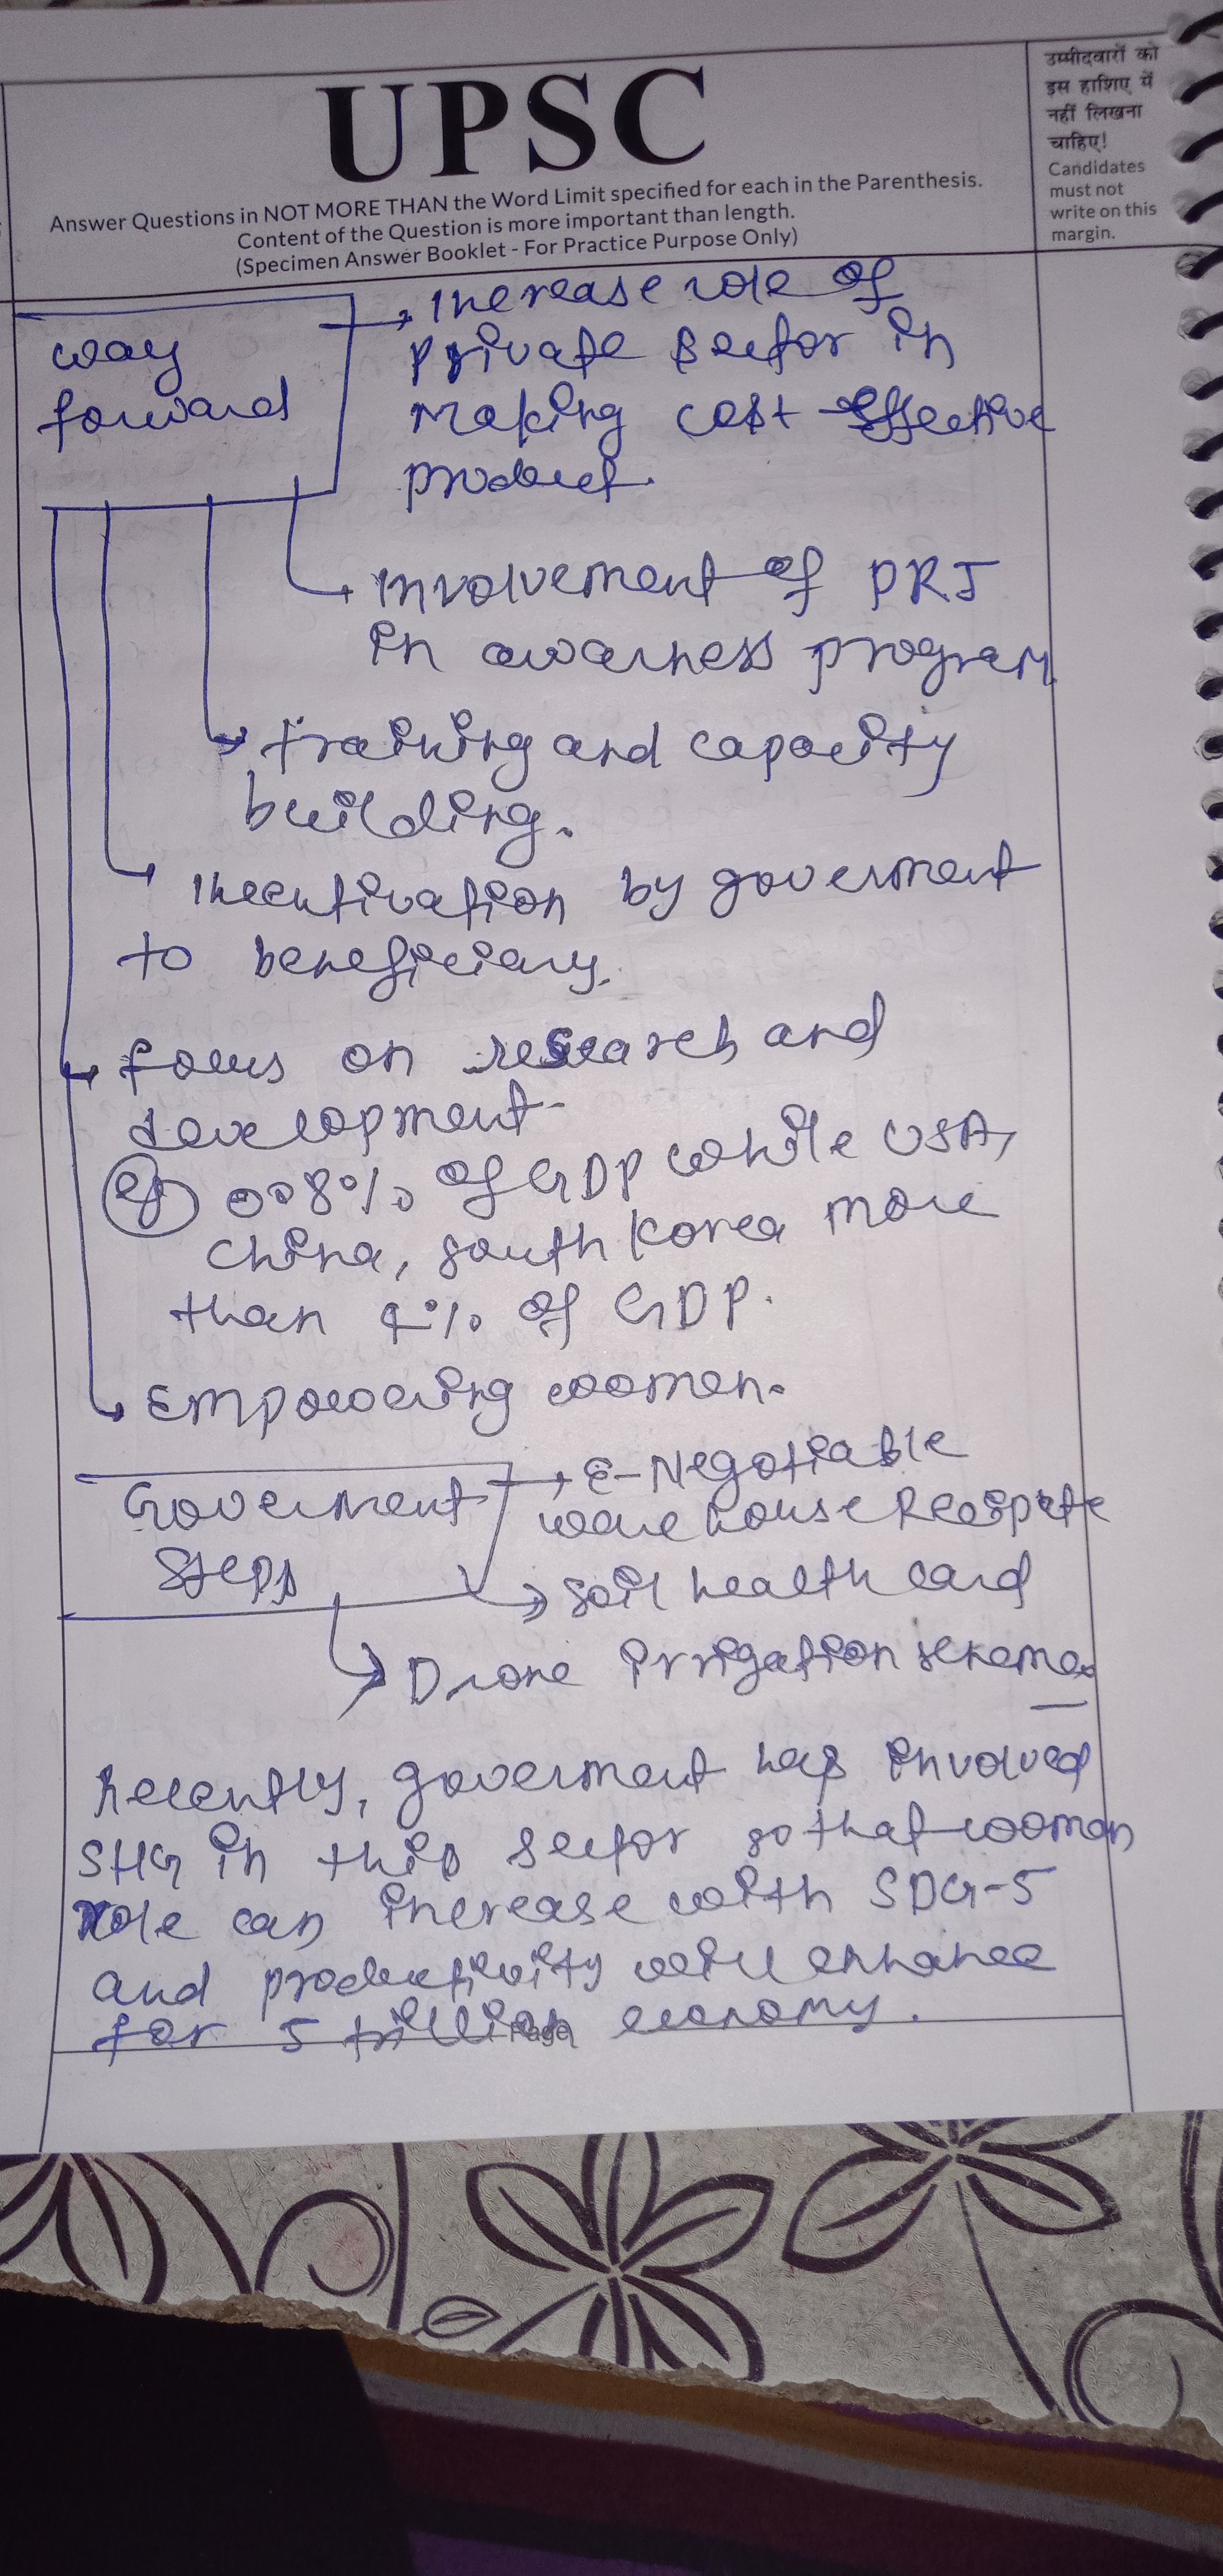 UPSC
Answer Questions in NOT MORE THAN the Word Limit specified for each in the Parenthesis.
Content of the Question is more important than length.
(Specimen Answer Booklet - For Practice Purpose Only)
उम्मीदवारों को
इस हाशिए में
नहीं लिखना
चाहिए!
Candidates
must not
write on this
margin.
way
forward
Increase role of
private sector in
making cost effective
product.
Involvement of PRI
in awarness program
training and capacity
building.
Incentivation by goverment
to beneficiary.
focus on research and
development
eg 0.8% of GDP while USA,
China, South Korea more
than 4% of GDP.
Empowering women.
Goverment
Steps
E-Negotiable
ware house
soil health card
Drone irrigation scheme
Recently, goverment has involved
SHG in this sector so that women
role can increase with SDG-5
and productivity will enhance
for 5 trillion economy.
Page